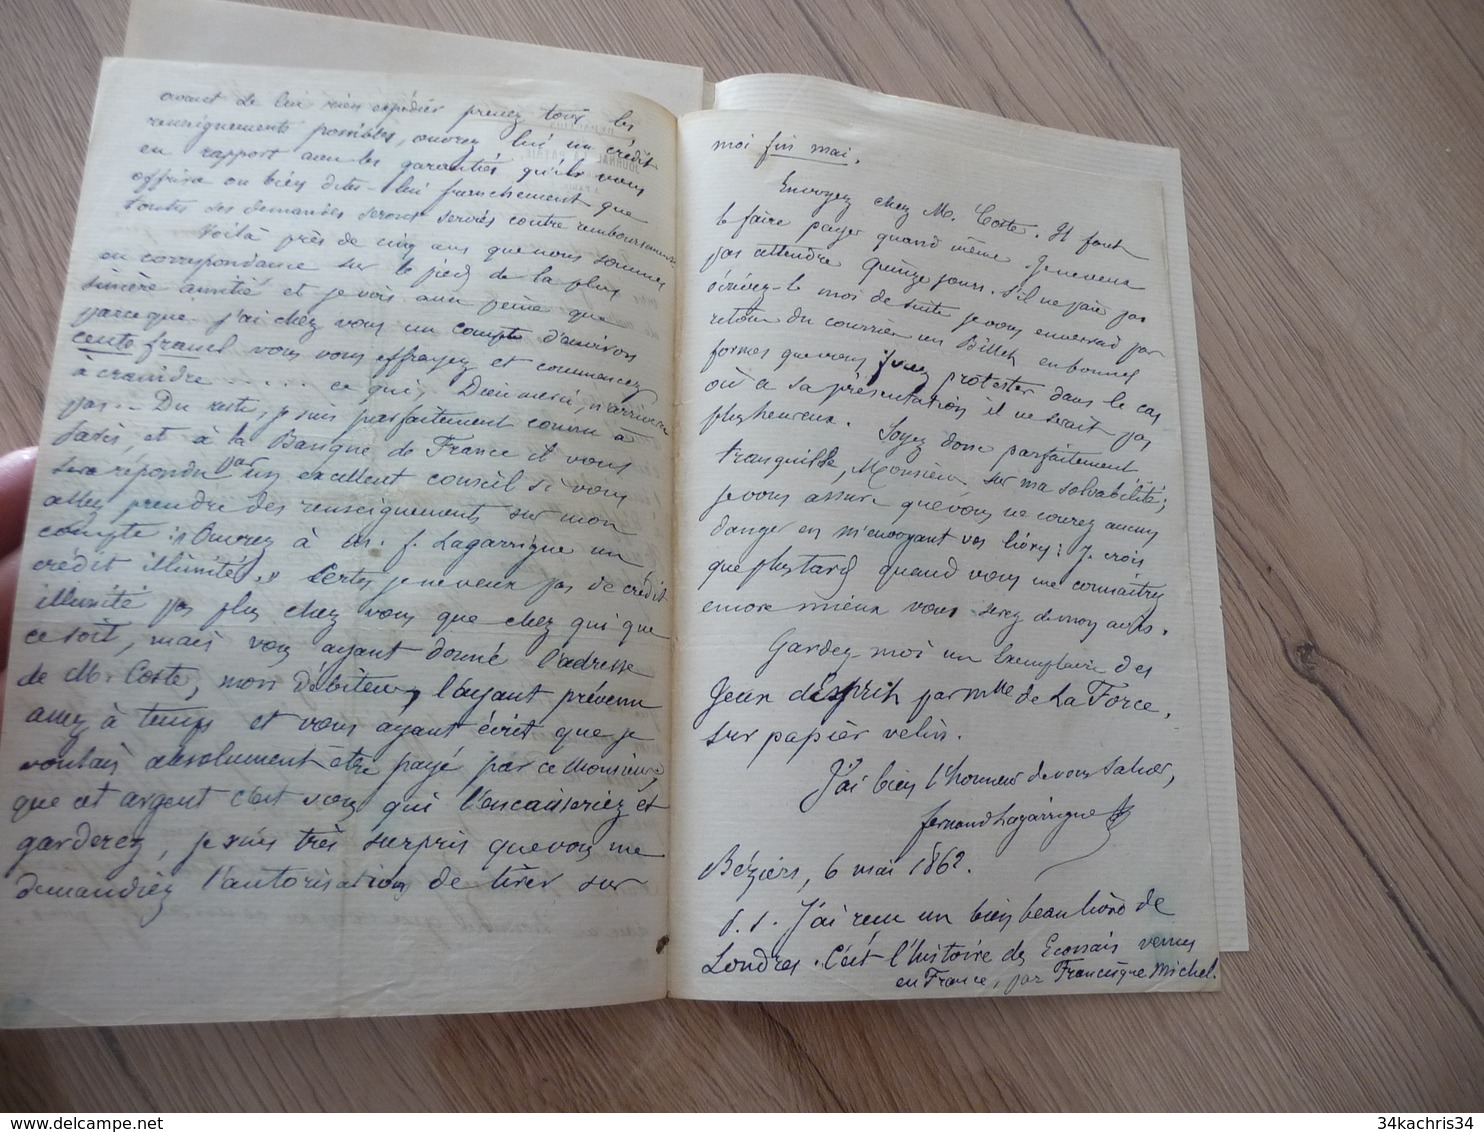 avant de lui rien expédier prenez tous les
renseignements possibles, ouvrez lui un crédit
en rapport avec les garanties qu'il vous
offrira ou bien dites-lui franchement que
toutes ses demandes seront servies contre remboursement.
Voilà près de cinq ans que nous sommes
en correspondance sur le pied de la plus
sincère amitié et je vois avec peine que
parce que j'ai chez vous un compte d'environ
cents francs vous vous effrayez et commencez
à craindre ..... ce qui, Dieu merci, n'arrivera
pas. Du reste, je suis parfaitement connu à
Paris, et à la Banque de France il vous
sera répondu par un excellent conseil si vous
allez prendre des renseignements sur mon
compte : "Ouvrez à M. f. Lagarrigue un
crédit illimité." Certes je ne veux pas de crédit
illimité pas plus chez vous que chez qui que
ce soit, mais vous ayant donné l'adresse
de M. Coste, mon débiteur, l'ayant prévenu
assez à temps et vous ayant écrit que je
voulais absolument être payé par ce Monsieur,
que cet argent c'est vous qui l'encaisseriez et
garderez, je suis très surpris que vous me
demandiez l'autorisation de tirer sur
moi fin mai.
Envoyez chez M. Coste. Il faut
le faire payer quand même. Je ne veux
pas attendre quinze jours. S'il ne paie pas
écrivez-le moi de suite je vous enverrai par
retour du courrier un Billet en bonnes
formes que vous ferez protester dans le cas
où à sa présentation il ne serait pas
plus heureux. Soyez donc parfaitement
tranquille, Monsieur sur ma solvabilité;
je vous assure que vous ne courez aucun
danger en m'envoyant vos livres; je crois
que plus tard quand vous me connaîtrez
encore mieux vous serez de mon avis.
Gardez-moi un Exemplaire des
Jeux d'esprit par Mlle de La Force,
sur papier vélin.
J'ai bien l'honneur de vous saluer,
fernand Lagarrigue
Béziers, 6 mai 1862.
P.S. J'ai reçu un bien beau livre de
Londres. C'est l'histoire des Ecossais venus
en France, par Francisque Michel.
JOURNAL
34kachris34
delcampe.net